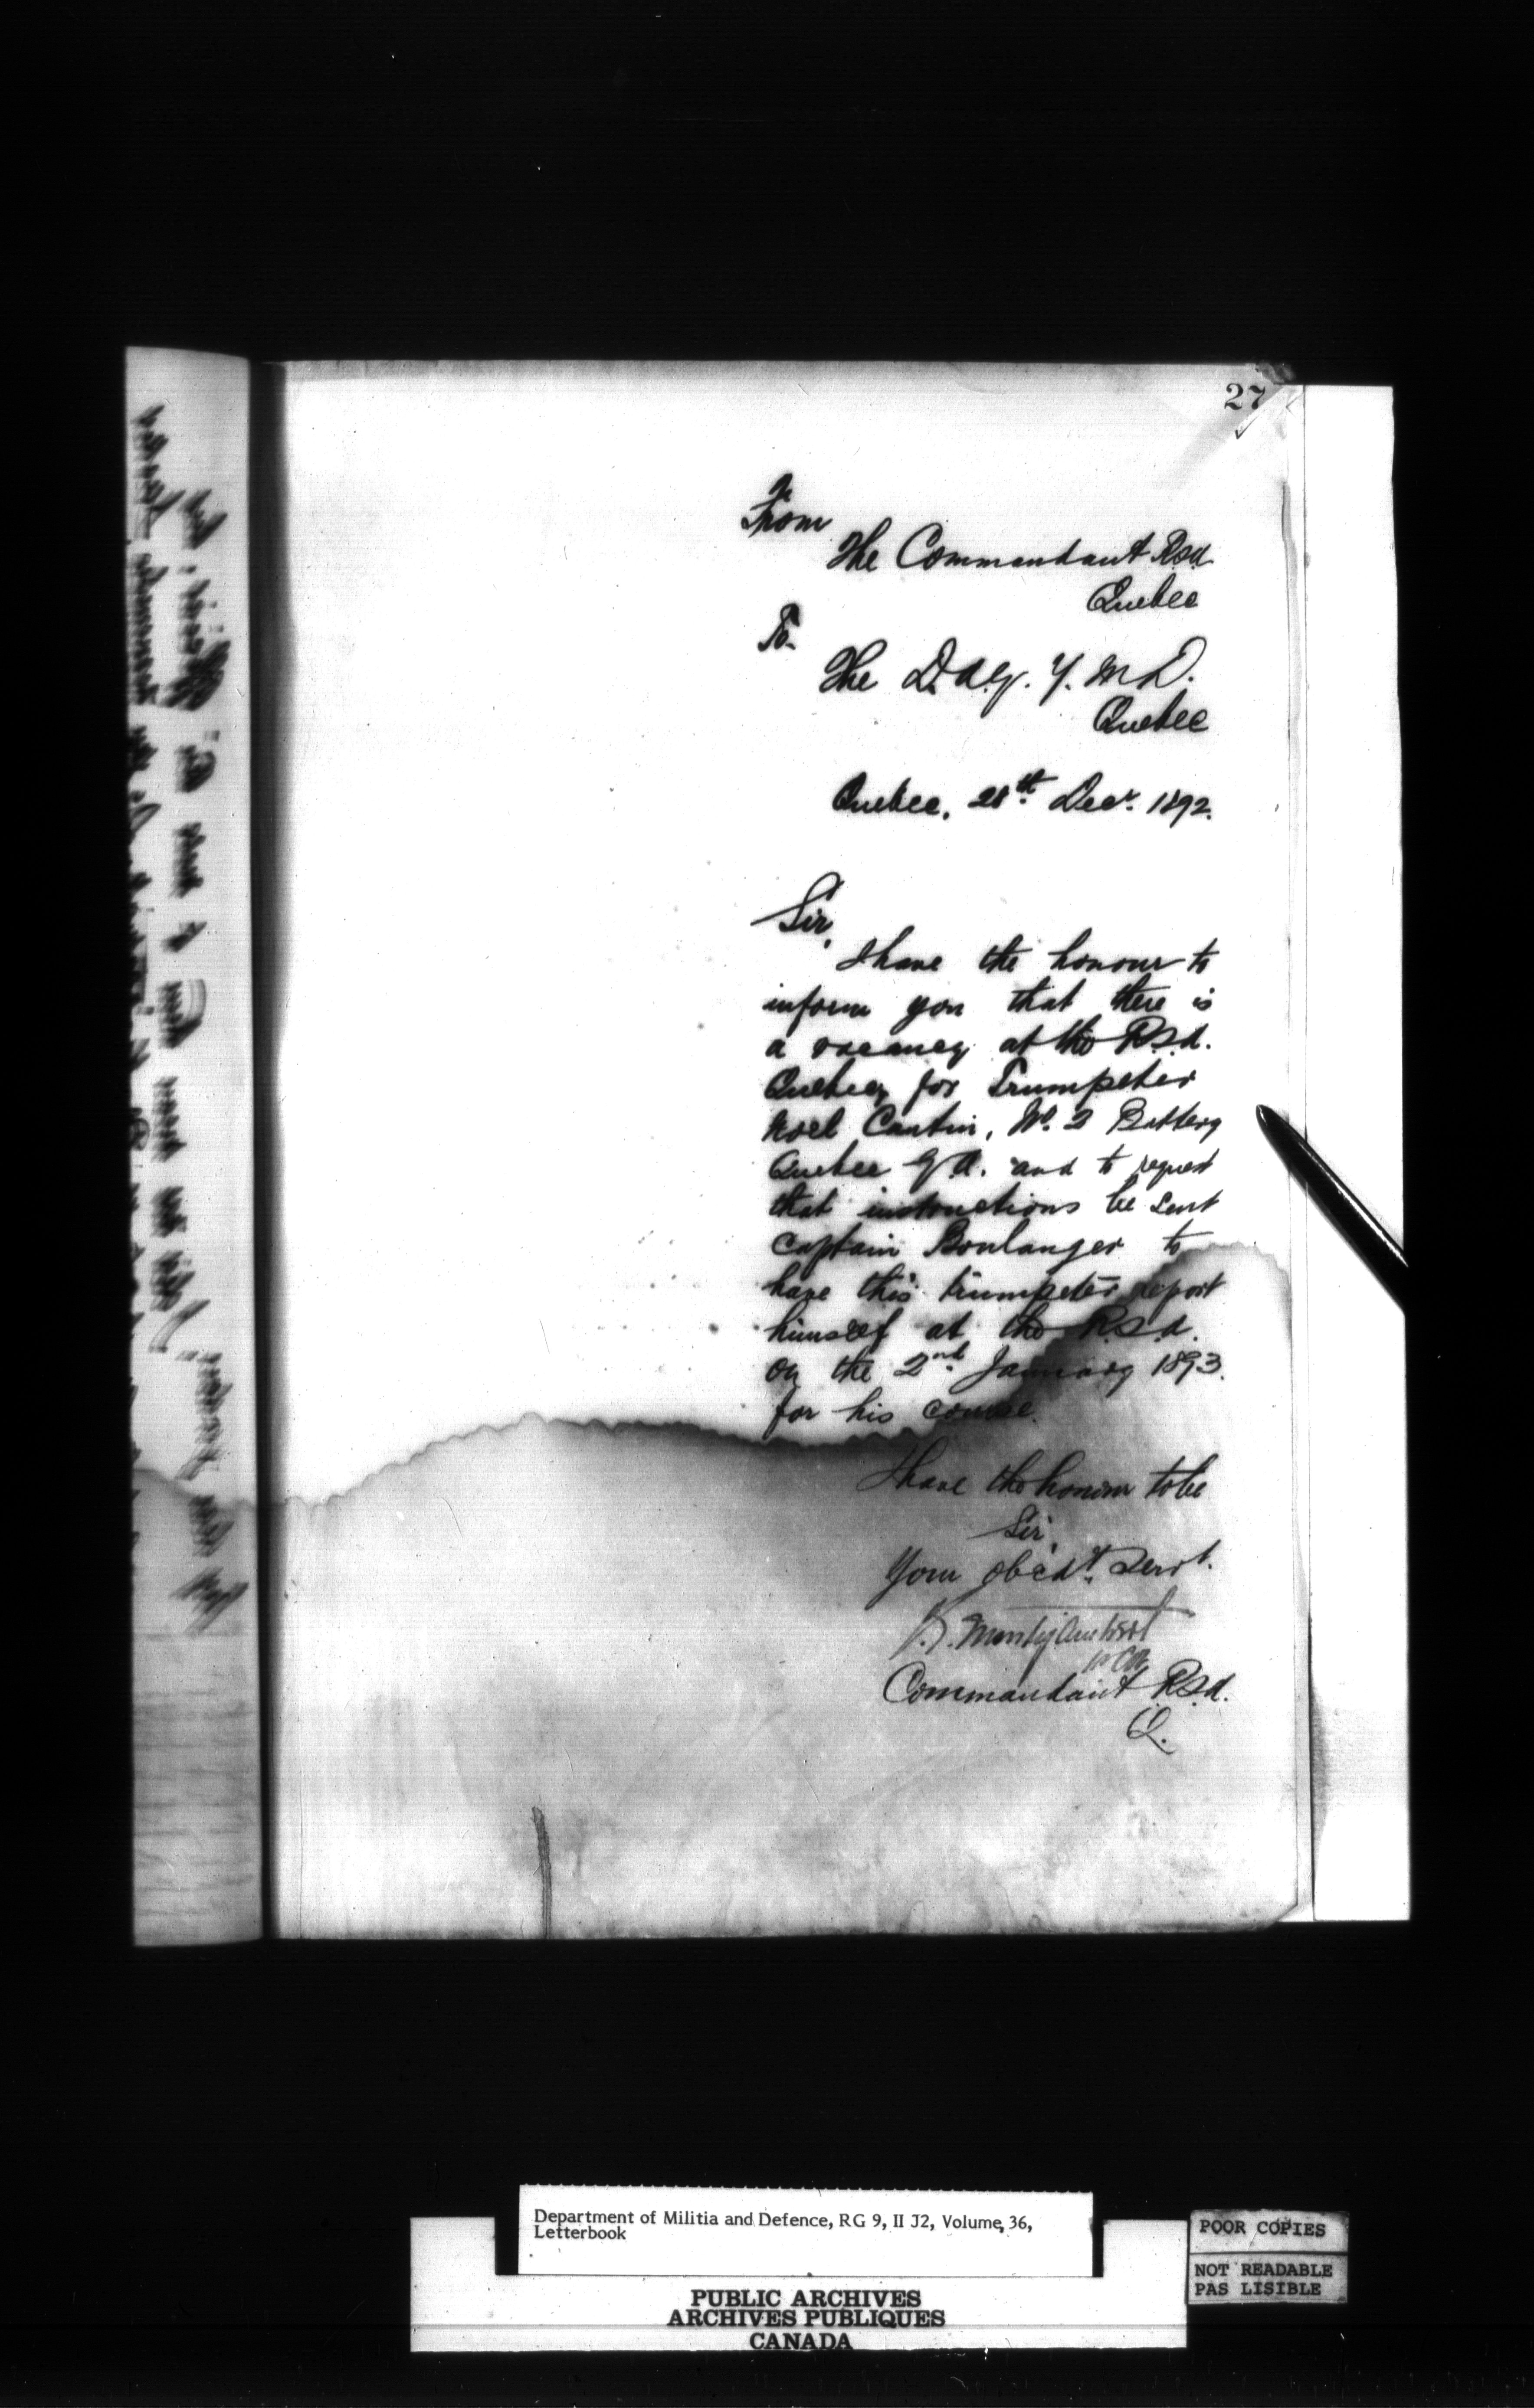 27
From
The Commandant R.S.A.
Quebec
To
The D.A.G. 7. M.D.
Quebec
Quebec, 28th Decr. 1892.
Sir,
I have the honour to
inform you that there is
a vacancy at the R.S.A.
Quebec, for Trumpeter
Noel Cantin, No. 2 Battery
Quebec G.A. and to request
that instructions be sent
Captain Boulanger to
have this trumpeter report
himself at the R.S.A.
on the 2nd January 1893.
for his course.
I have the honour to be
Sir,
Your obedt. Servt.
Commandant R.S.A.
Q.
Department of Militia and Defence, RG 9, II J2, Volume, 36,
Letterbook
POOR COPIES
NOT READABLE
PAS LISIBLE
PUBLIC ARCHIVES
ARCHIVES PUBLIQUES
CANADA